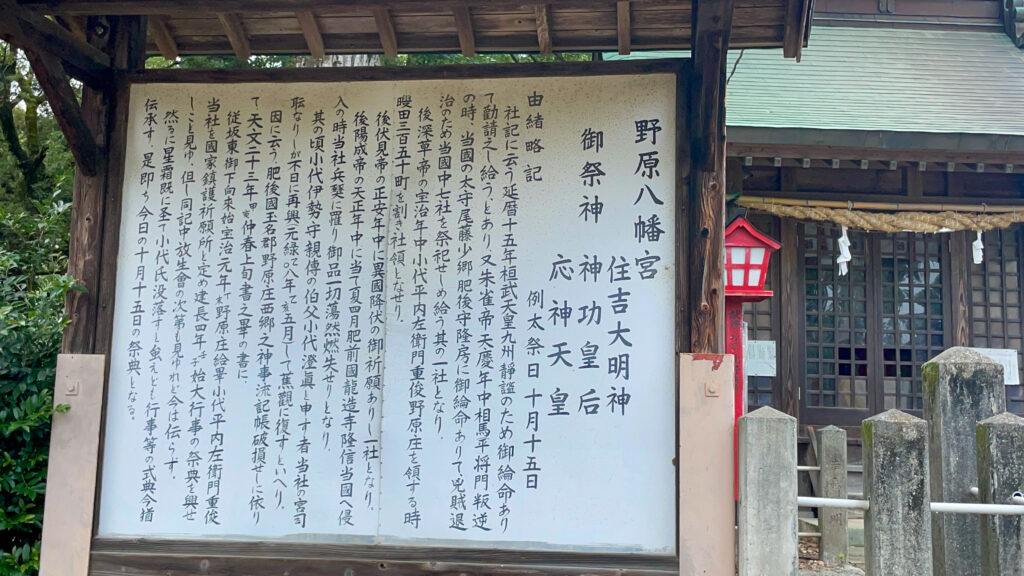 野原八幡宮
住吉大明神
御祭神 神功皇后
応神天皇
例太祭日十月十五日
由緒略記
社記に云う延暦十五年桓武天皇九州靜謐のため御綸命あり
て勧請之し給う、とあり又朱雀帝天慶年中相馬平将門叛逆
の時、当國の太守尾藤少郷肥後守隆房に御綸命ありて兇賊退
治のため当國中七社を祭祀せしめ給う其の一社となり。
後深草帝の宝治年中小代平内左衛門重俊野原庄を領する時
畯田三百五十町を割き社領となせり。
後伏見帝の正安年中に異國降伏の御祈願あり し一社となり、
後陽成帝の天正年中に当て夏四月肥前國龍造寺隆信当國へ侵
入の時当社兵燹に罹り御品一切蕩然燃失せりとなり、
其の頃小代伊勢守親傳の伯父小代澄眞と申す者当社の宮司
耻なりしが不日に再興元緑で八年 五月して蕉觀に復すといへり。
因に云う肥後國玉名郡野原庄西郷之神事流記帳破損せしに依り
て天文二十三年甲寅仲春上旬書之畢の書に
従坂東御下向来始宝治元年丁未野原庄給畢小代平内左衛門重俊
当社を國家鎮護祈願所と定め建長四年壬子始大行事の祭典を興せ
しこと見ゆ、但し同記中放生會の次第も見ゆれど今は伝らす。
然るに星霜既に圣て小代氏没落すと虽えども行事等の式典今猶
伝承す、是即ち今日の十月十五日の祭典となる。